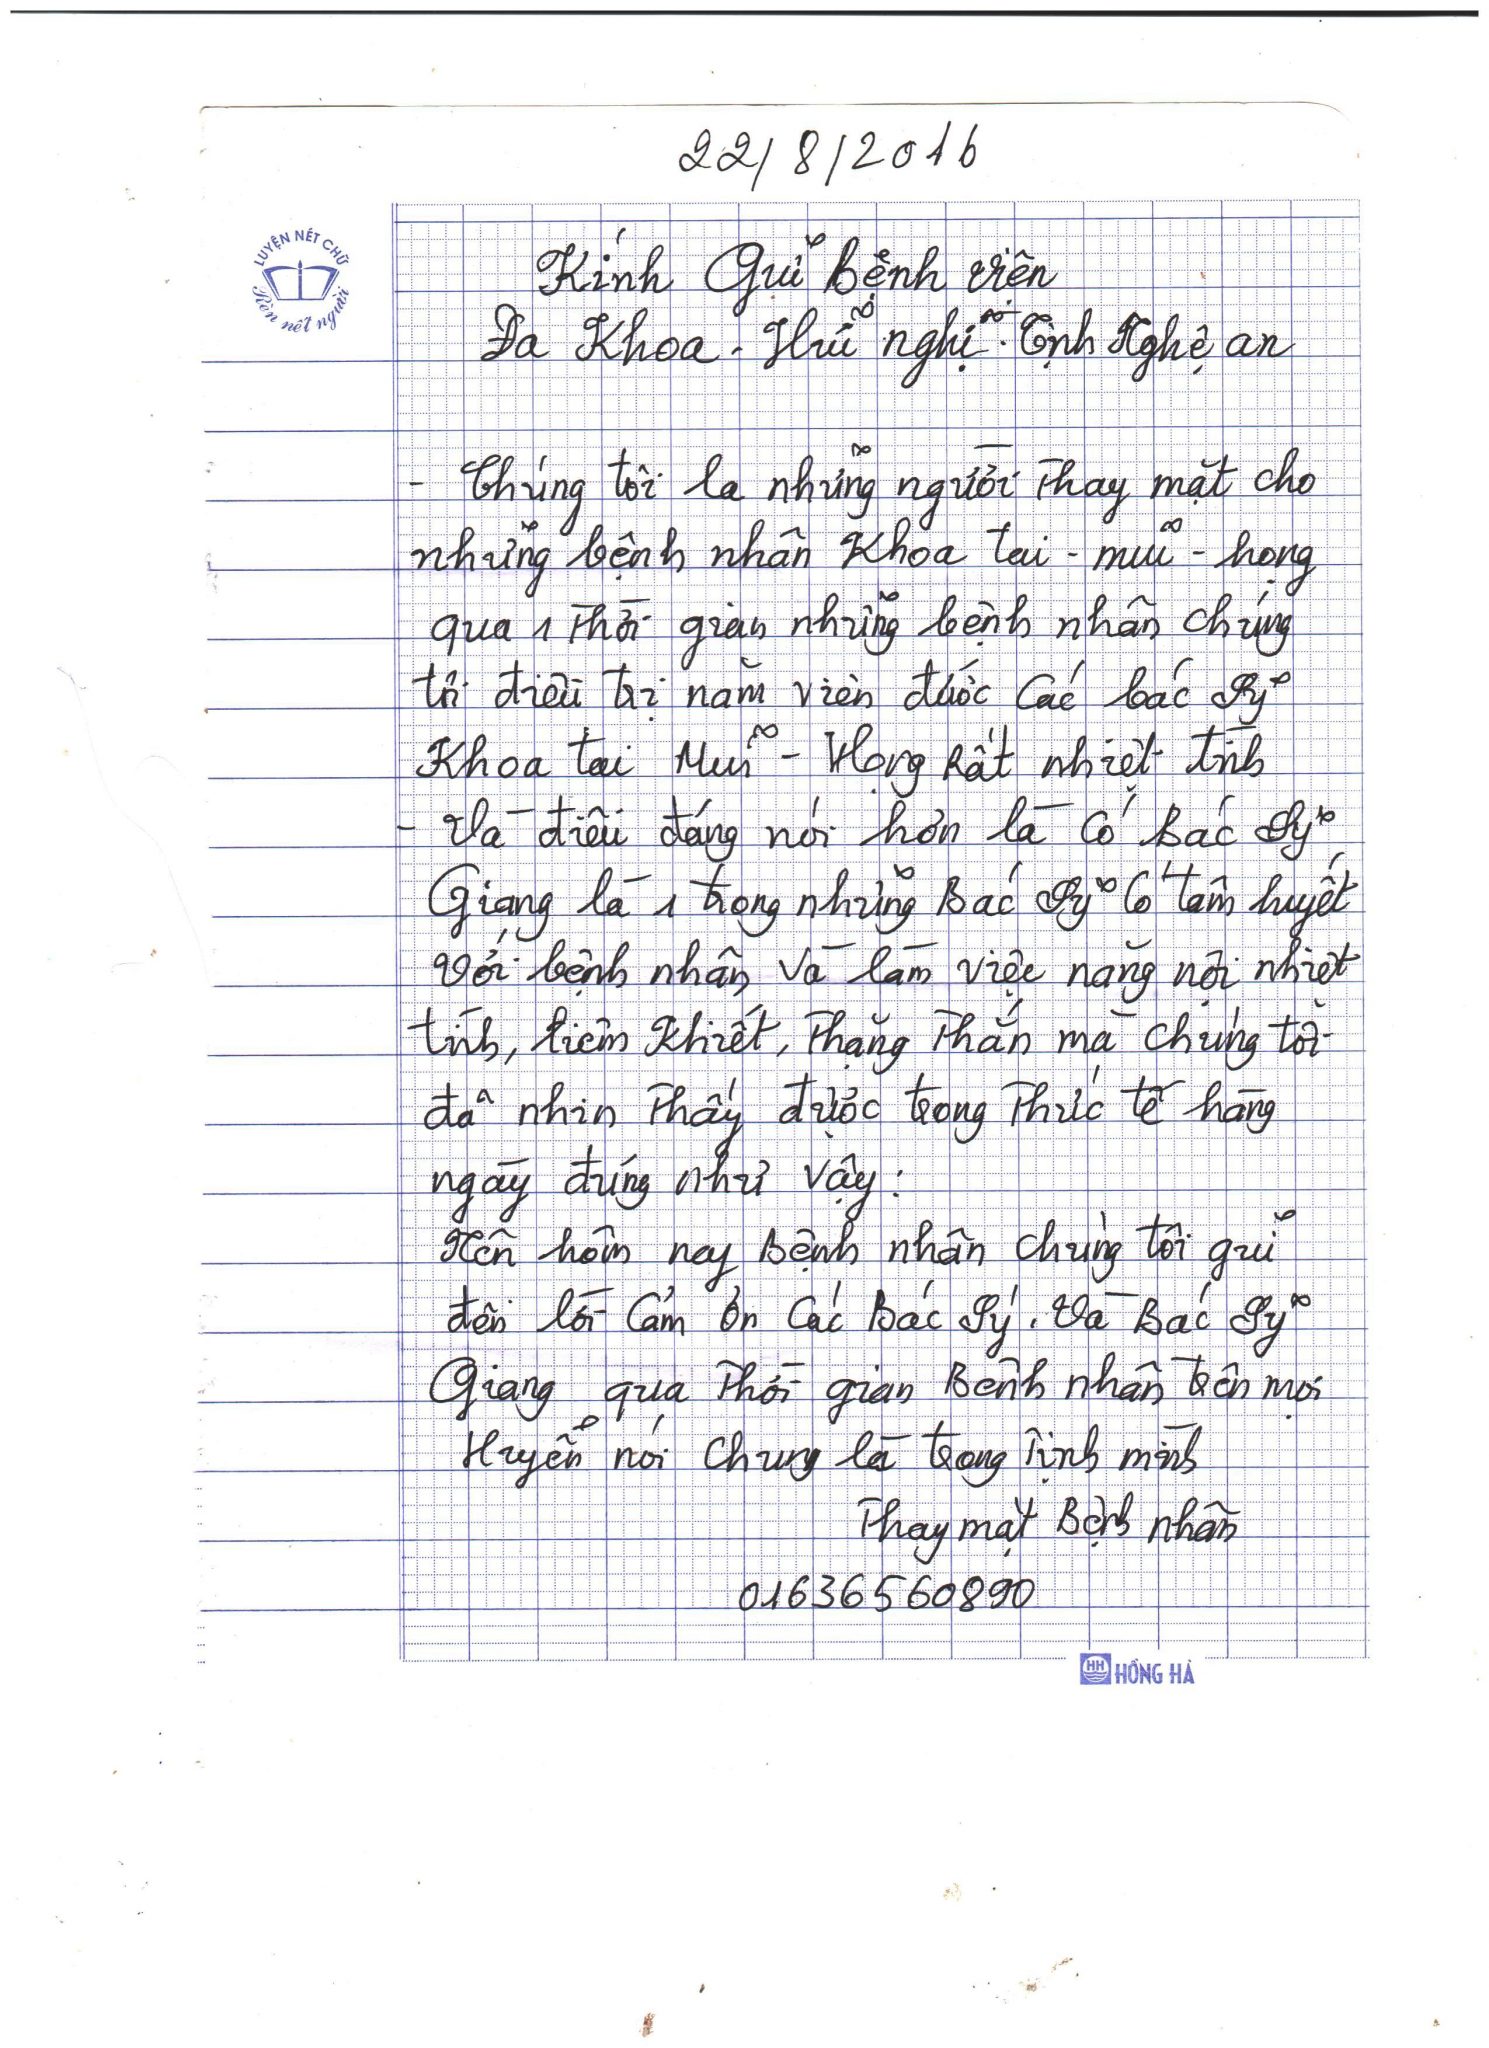 22/8/2016
LUYỆN NÉT CHỮ
Rèn nết người
Kính Gửi Bệnh viện
Đa Khoa - Hữu nghị - Tỉnh Nghệ an
- Chúng tôi là những người Thay mặt cho
những bệnh nhân Khoa tai - mũi - họng
qua 1 Thời gian những bệnh nhân chúng
tôi điều trị nằm viện được Các bác Sỹ
Khoa tai Mũi - Họng Rất nhiệt tình
- Và điều đáng nói hơn là Có Bác Sỹ
Giang là 1 trong những Bác Sỹ Có tâm huyết
Với bệnh nhân và làm việc năng nội nhiệt
tình, liêm Khiết, Thẳng Thắn mà chúng tôi
đã nhìn Thấy được trong Thực tế hàng
ngày đúng như vậy.
Nên hôm nay Bệnh nhân chúng tôi gửi
đến lời Cảm ơn Các Bác Sỹ. Và Bác Sỹ
Giang qua Thời gian Bệnh nhân trên mọi
Huyện nói Chung là trong Tỉnh mình
Thay mặt Bệnh nhân
01636560890
HH HỒNG HÀ